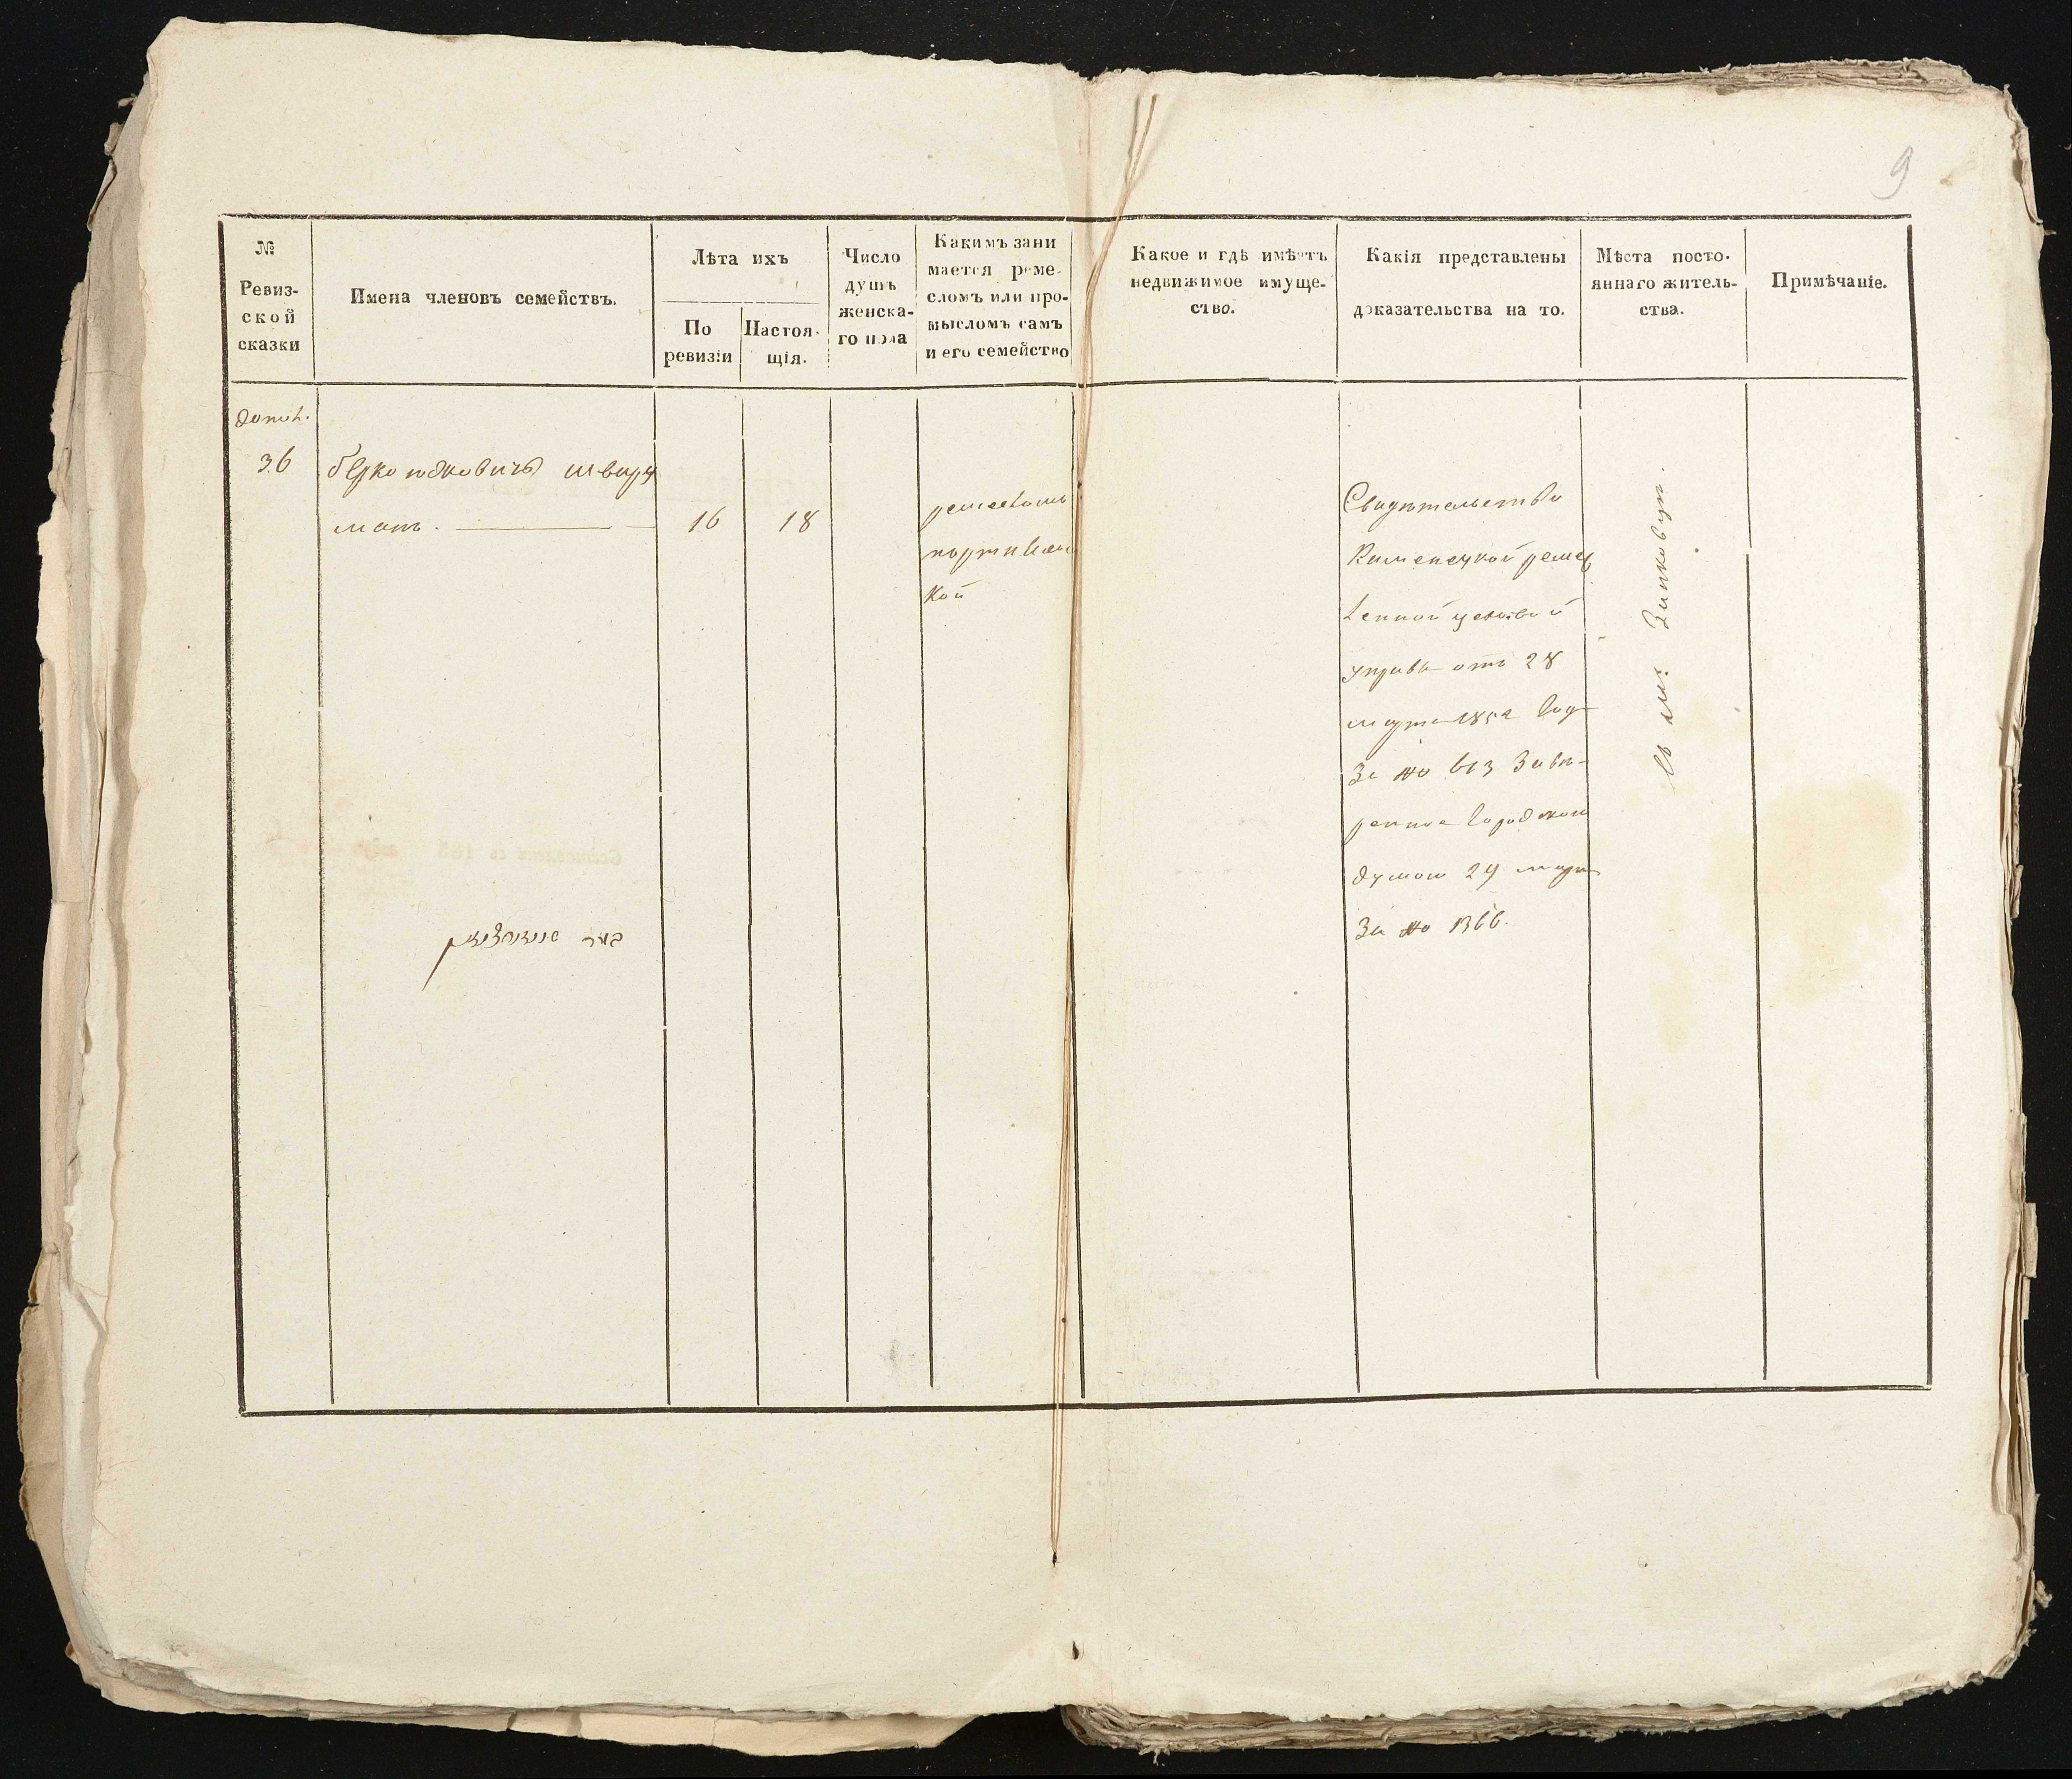 9
№
Ревиз-
ской
сказки
Имена членовъ семействъ.
Лѣта ихъ
По
ревизіи
Настоя-
щія.
Число
душъ
женска-
го пола
Какимъ зани
мается реме-
сломъ или про-
мысломъ самъ
и его семейство
Какое и гдѣ имѣетъ
недвижимое имуще-
ство.
Какія представлены
доказательства на то.
Мѣста посто-
яннаго житель-
ства.
Примѣчаніе.
допол.
36
Берко Юдковичъ Шварц
манъ.
16
18
ремесломъ
портняжес
кой
Свидѣтельство
Каменецкой ремес
ленной цеховой
управы отъ 28
марта 1852 года
за № 613 завѣ-
ренное городскою
думою 29 марта
за № 1366.
въ м: Зинковцу.